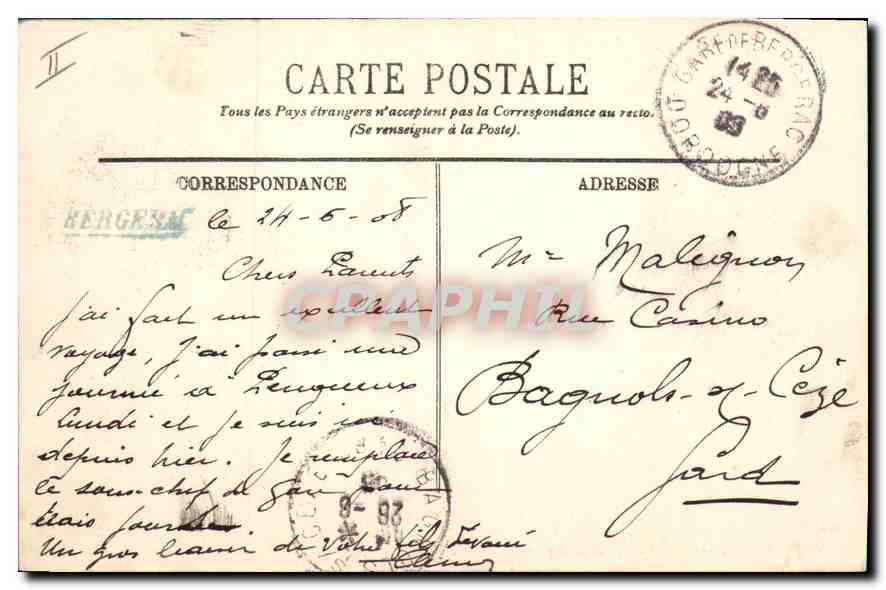 II
CARTE POSTALE
Tous les Pays étrangers n'acceptent pas la Correspondance au recto.
(Se renseigner à la Poste).
GARE DE BERGERAC
14 25
24 - 6
DORDOGNE
CORRESPONDANCE
BERGERAC
le 24-6-08
Chers Parents
j'ai fait un excellent
voyage, j'ai passé une
journée à Périgueux
lundi et je suis ici
depuis hier. Je remplace
le sous-chef de gare pour
trois jours
Un gros baiser de votre fils dévoué
ADRESSE
Mr Malignon
Rue Casino
Bagnols-s-Cèze
Gard
26 - 6
CPAPHIL